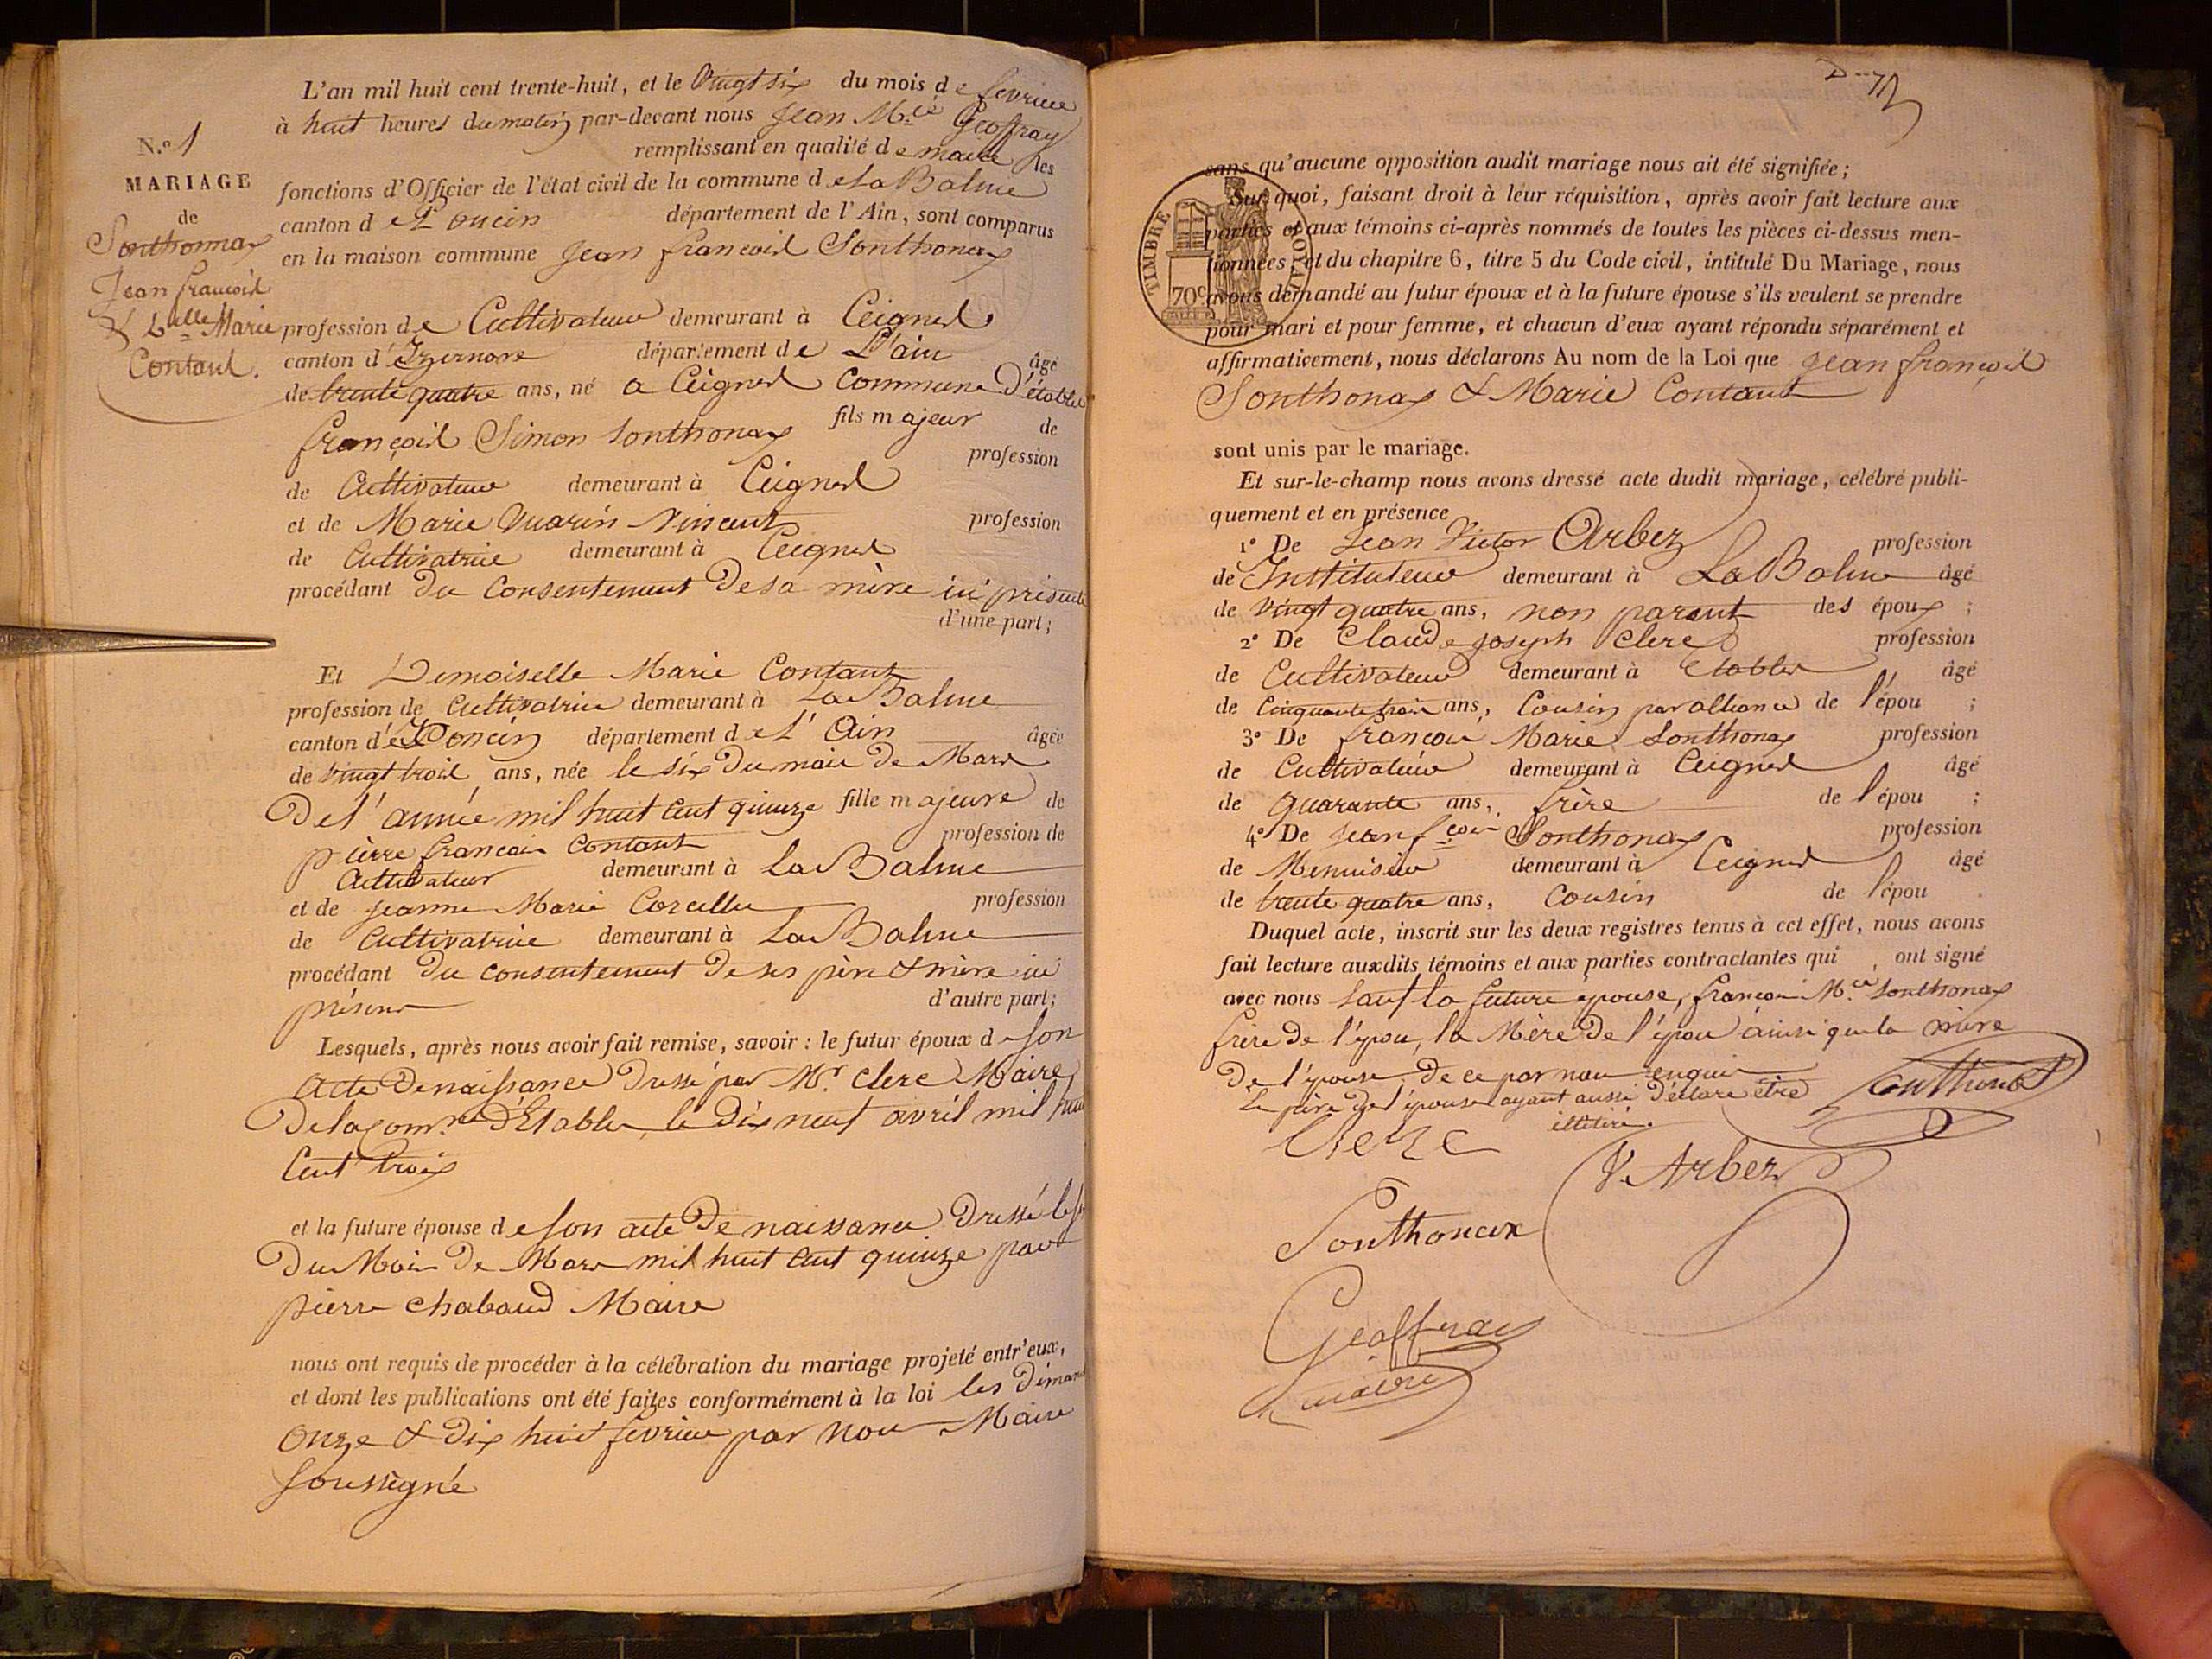 N.º 1
MARIAGE
de
Sonthonnax
Jean francois
& D.lle Marie
Contant.
L'an mil huit cent trente-huit, et le vingt six du mois de fevrier
à huit heures du matin par-devant nous Jean M.ie Geoffray
remplissant en qualité de maire les
fonctions d'Officier de l'état civil de la commune de La Balme
canton de Poncin département de l'Ain, sont comparus
en la maison commune Jean francois Sonthonax
profession de Cultivateur demeurant à Ceignes
canton d'Izernore département de L'ain âgé
de trente quatre ans, né a Ceignes Commune D'étables
fils majeur de
françois Simon Sonthonax profession
de Cultivateur demeurant à Ceignes
et de Marie Vuarin Vincent profession
de Cultivatrice demeurant à Ceignes
procédant du Consentement de sa mère ici présente
d'une part;
Et Demoiselle Marie Contant
profession de Cultivatrice demeurant à La Balme
canton de Poncin département de L'Ain âgée
de vingt trois ans, née le six du mois de Mars
De l'année mil huit cent quinze fille majeure de
pierre francois Contant profession de
Cultivateur demeurant à La Balme
et de jeanne Marie Corcelle profession
de Cultivatrice demeurant à La Balme
procédant du consentement de ses père & mère ici
présens d'autre part;
Lesquels, après nous avoir fait remise, savoir : le futur époux de son
acte de naissance Dressé par M.r Clerc Maire
De la com.ne D'Etables, le dix neuf avril mil huit
Cent trois
et la future épouse de son acte de naissance Dressé le six
Du Mois De Mars mil huit cent quinze par
pierre chabaud Maire
nous ont requis de procéder à la célébration du mariage projeté entr'eux,
et dont les publications ont été faites conformément à la loi les Diman
onze & dix huit fevrier par nous Maire
soussigné
TIMBRE ROYAL
70c
sans qu'aucune opposition audit mariage nous ait été signifiée;
Sur quoi, faisant droit à leur réquisition, après avoir fait lecture aux
parties et aux témoins ci-après nommés de toutes les pièces ci-dessus men-
tionnées, et du chapitre 6, titre 5 du Code civil, intitulé Du Mariage, nous
avons demandé au futur époux et à la future épouse s'ils veulent se prendre
pour mari et pour femme, et chacun d'eux ayant répondu séparément et
affirmativement, nous déclarons Au nom de la Loi que Jean françois
Sonthonax & Marie Contant
sont unis par le mariage.
Et sur-le-champ nous avons dressé acte dudit mariage, célébré publi-
quement et en présence
1º De Jean Victor Arbez profession
de Instituteur demeurant à La Balme âgé
de vingt quatre ans, non parent des époux ;
2º De Claude joseph Clerc profession
de Cultivateur demeurant à Etables âgé
de Cinquante trois ans, Cousin par alliance de l'épou ;
3º De francois Marie Sonthonax profession
de Cultivateur demeurant à Ceignes âgé
de quarante ans, frère de l'épou ;
4º De jean f.cois Sonthonax profession
de Menuisier demeurant à Ceignes âgé
de trente quatre ans, Cousin de l'épou .
Duquel acte, inscrit sur les deux registres tenus à cet effet, nous avons
fait lecture auxdits témoins et aux parties contractantes qui ont signé
avec nous sauf la future épouse, francois M.ie Sonthonax
frère de l'épou, la Mère de l'épou ainsi que la mère
De l'épouse. de ce par nou enquis
Le père de l'épouse ayant aussi déclaré être
illitiré.
Sonthonax
Clerc
V. Arbez
Sonthonax
Geoffray
maire